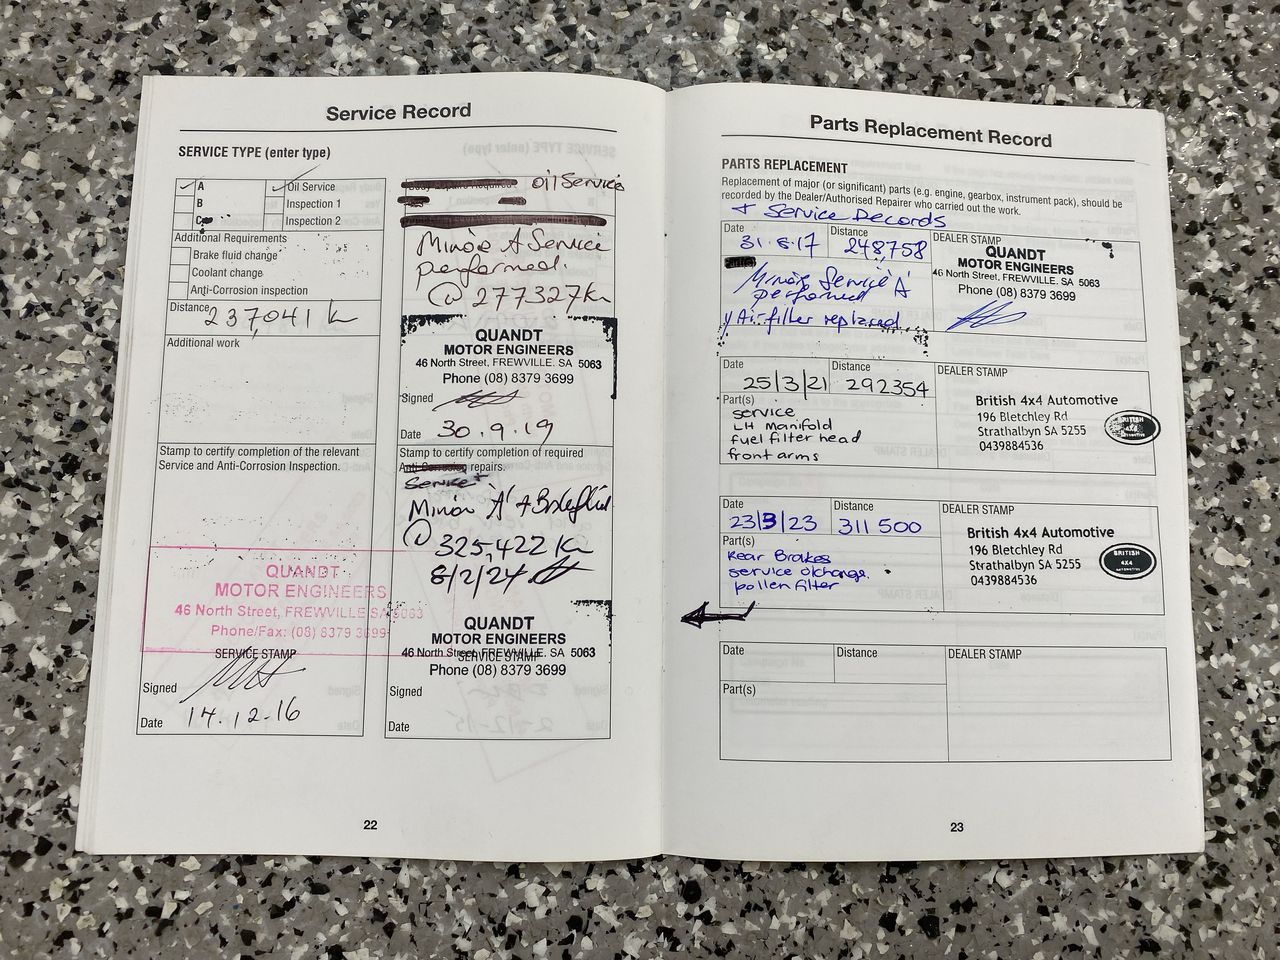 Service Record
SERVICE TYPE (enter type)
A
Oil Service
B
Inspection 1
C
Inspection 2
Additional Requirements
Brake fluid change
Coolant change
Anti-Corrosion inspection
Distance 237,041 km
Additional work
Stamp to certify completion of the relevant
Service and Anti-Corrosion Inspection.
QUANDT
MOTOR ENGINEERS
46 North Street, FREWVILLE SA 5063
Phone/Fax: (08) 8379 3699
SERVICE STAMP
Signed
Date 14.12.16
Oil Service
B
Minor A Service
performed.
@ 277327km
QUANDT
MOTOR ENGINEERS
46 North Street, FREWVILLE. SA 5063
Phone (08) 8379 3699
Signed
Date 30.9.19
Stamp to certify completion of required
Anti-Corrosion repairs.
Service +
Minor 'A' + Brake fluid
@ 325,422 km
8/2/24
QUANDT
MOTOR ENGINEERS
46 North Street, FREWVILLE. SA 5063
SERVICE STAMP
Phone (08) 8379 3699
Signed
Date
22
Parts Replacement Record
PARTS REPLACEMENT
Replacement of major (or significant) parts (e.g. engine, gearbox, instrument pack), should be
recorded by the Dealer/Authorised Repairer who carried out the work.
+ Service Records
Date 31.8.17
Distance 248,758
DEALER STAMP
QUANDT
MOTOR ENGINEERS
46 North Street, FREWVILLE. SA 5063
Phone (08) 8379 3699
Minor Service 'A'
performed
Air filter replaced
Date 25/3/21
Distance 292354
DEALER STAMP
Part(s)
service
LH Manifold
fuel filter head
front arms
British 4x4 Automotive
196 Bletchley Rd
Strathalbyn SA 5255
0439884536
Date 23/3/23
Distance 311 500
DEALER STAMP
Part(s)
Rear Brakes
service oil change
pollen filter
British 4x4 Automotive
196 Bletchley Rd
Strathalbyn SA 5255
0439884536
BRITISH
4X4
AUTOMOTIVE
Date
Distance
DEALER STAMP
Part(s)
23